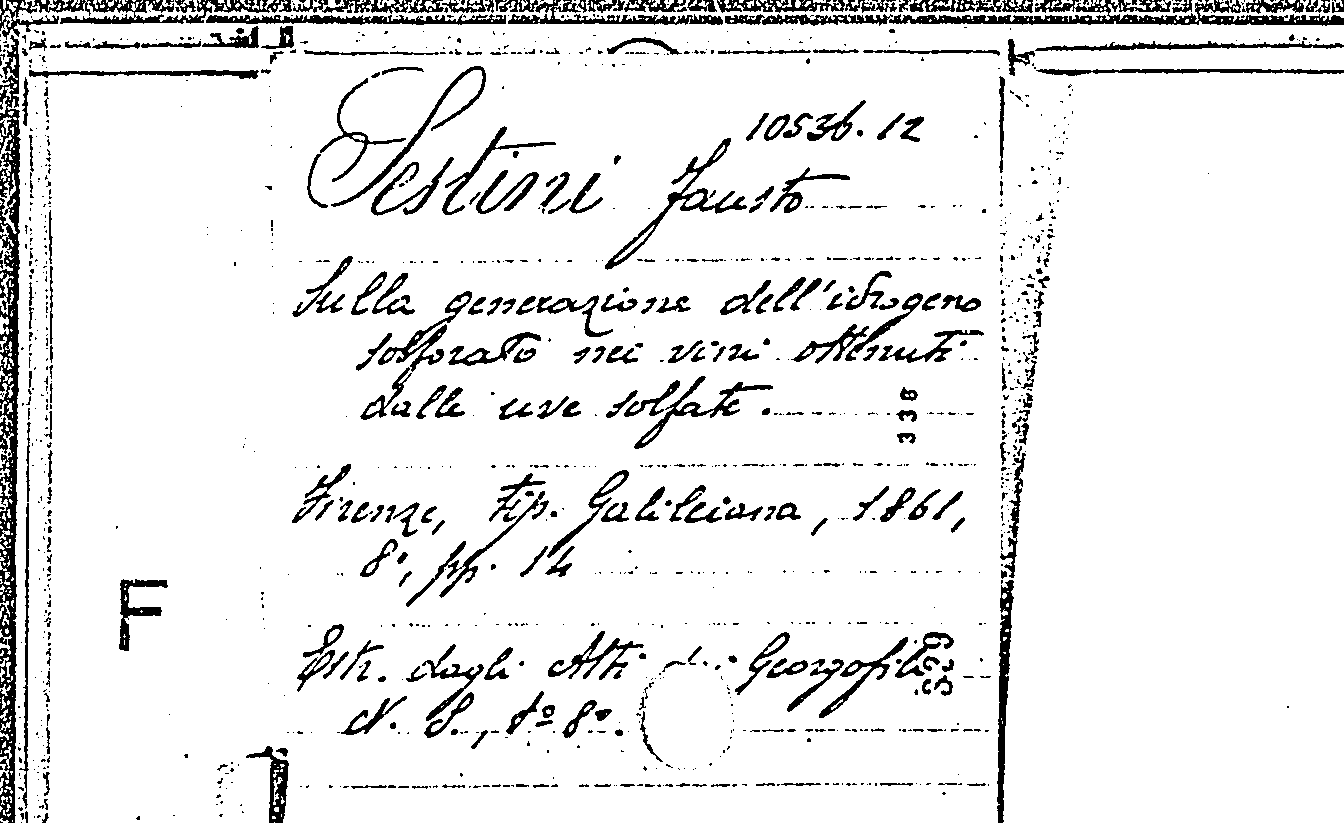 10536.12
Sestini Fausto
Sulla generazione dell'idrogeno
solforato nei vini ottenuti
dalle uve solfate.
338
Firenze, Tip. Galileiana, 1861,
8°, pp. 14
F
Estr. dagli Atti dei Georgofili
529
N. S., to 8°.